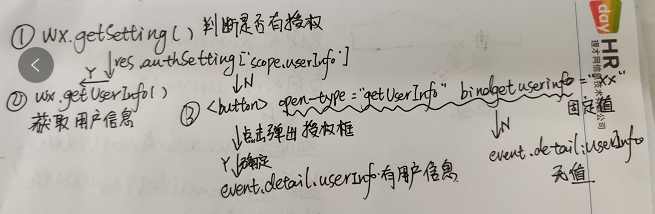 ① wx.getSetting() 判断是否有授权
res.authSetting['scope.userInfo']
Y
N
② wx.getUserInfo()
获取用户信息
③ <button> open-type="getUserInfo" bindgetuserinfo="xx"
固定值
点击弹出授权框
Y 确定
N
event.detail.userInfo 有用户信息
event.detail.userInfo
无值
day
HR
理才网信息技术有限公司